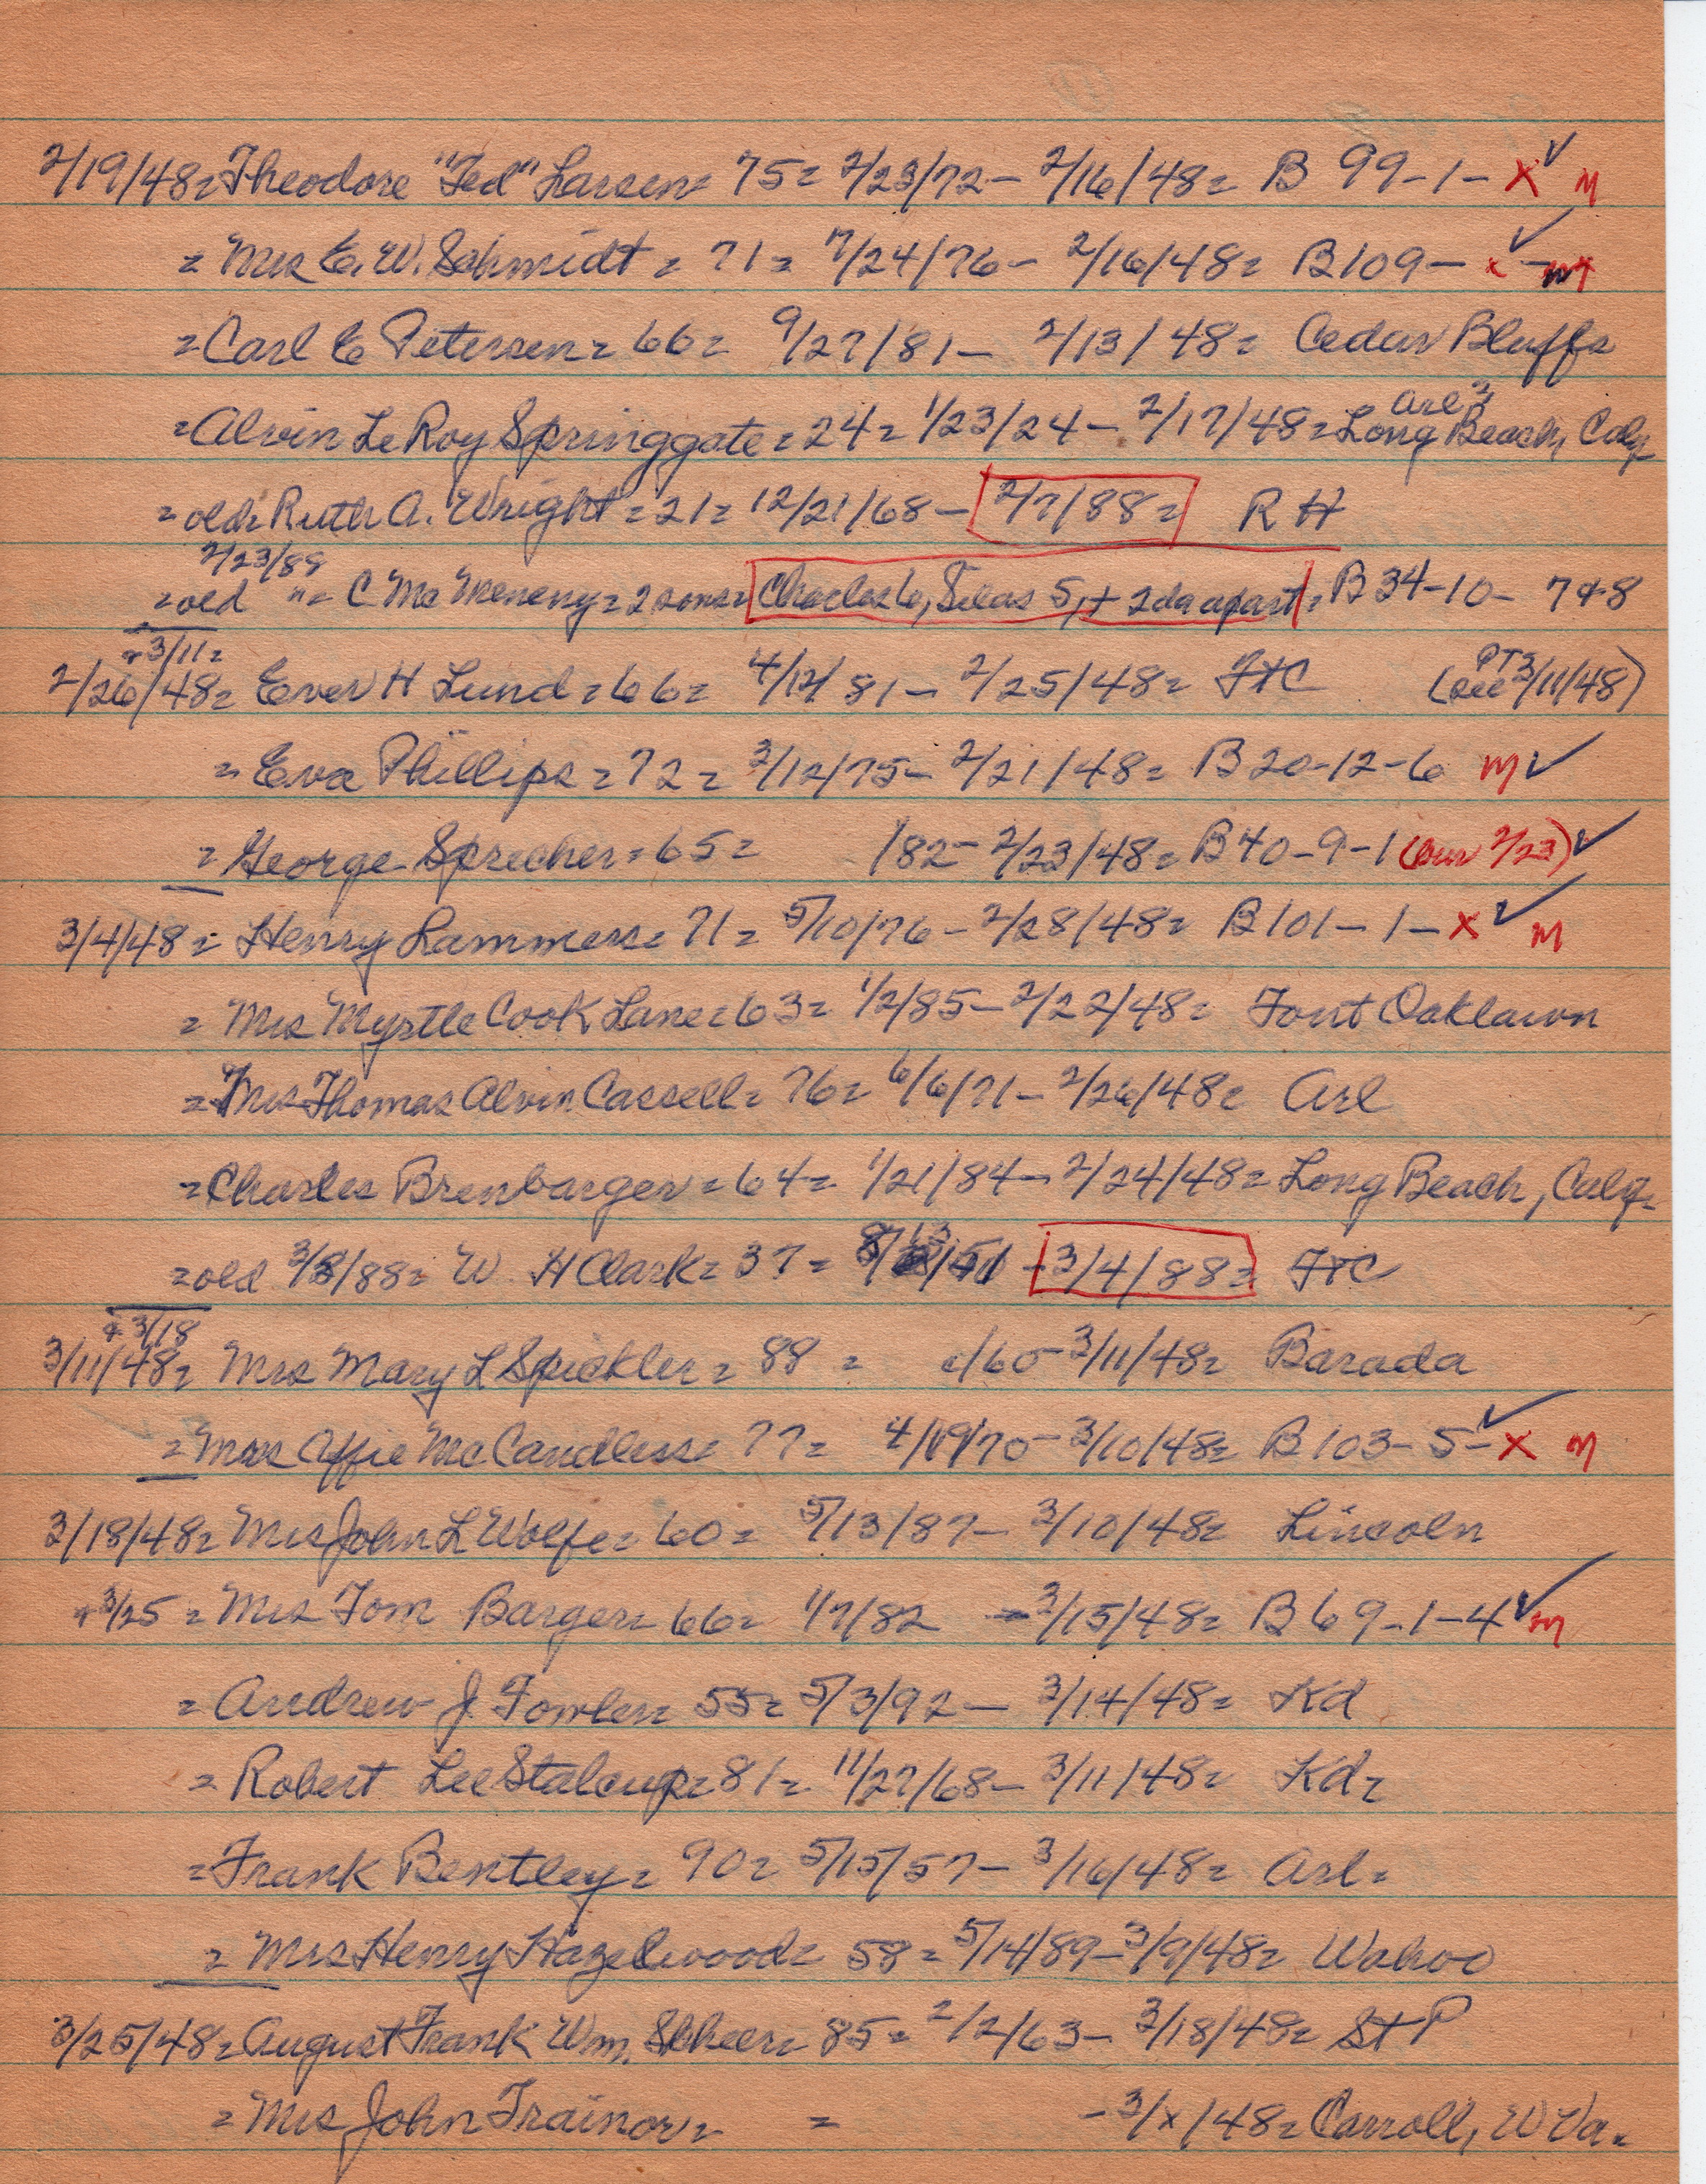 2/19/48= Theodore "Ted" Larsen= 75= 2/23/72- 2/16/48= B 99-1- X ✓ M
= Mrs E. W. Schmidt = 71= 7/24/76- 2/16/48= B109- x ✓ -
= Carl C Petersen= 66= 9/27/81- 2/13/48= Cedar Bluffs
Arl ?
= Alvin LeRoy Springgate= 24= 1/23/24- 2/17/48= Long Beach, Calif
= old= Ruth A. Wright= 21= 12/21/68- 2/7/88= R H
2/23/88
= old "= C Mc Meneny= 2 sons= Charles 6, Silas 5, + 2 da apart= B 34-10- 7+8
+3/11=
2/26/48= Ever H Lund= 66= 4/12/81- 2/25/48= F+C (see PT 3/11/48)
= Eva Phillips= 72= 3/12/75- 2/21/48= B 20-12-6 M ✓
= George Sprecher= 65= /82- 2/23/48= B 40-9-1 (sur 2/23) ✓
3/4/48= Henry Lammers= 71= 5/10/76- 2/28/48= B101-1- X ✓ M
= Mrs Myrtle Cook Lane= 63= 1/2/85- 2/22/48= Font Oaklawn
= Mrs Thomas Alvin Cassell= 76= 6/6/71- 2/26/48= Arl
= Charles Brenbarger= 64= 1/21/84- 2/24/48= Long Beach, Calif-
= old 3/8/88= W H Clark= 37= - 3/4/88= F+C
+3/18
3/11/48= Mrs Mary L Spickler= 88 = c/60- 3/11/48= Barada
= Mrs Affie McCandless= 77= 4/19/70- 3/10/48= B 103-5- ✓ X M
3/18/48= Mrs John L Wolfe= 60= 5/13/87- 3/10/48= Lincoln
+3/25 = Mrs Tom Barger= 66= 1/7/82 - 3/15/48= B 69-1-4 ✓ M
= Andrew J. Fowler= 55= 5/3/92- 3/14/48= Kd
= Robert Lee Stalcup= 81= 11/27/68- 3/11/48= Kd=
= Frank Bentley= 90= 5/15/57- 3/16/48= Arl=
= Mrs Henry Hazelwood= 58= 5/14/89- 3/9/48= Wahoo
3/25/48= August Frank Wm. Scheer= 85= 2/2/63- 3/18/48= St P
= Mrs John Trainor= = - 3/x/48= Carroll, W Va=